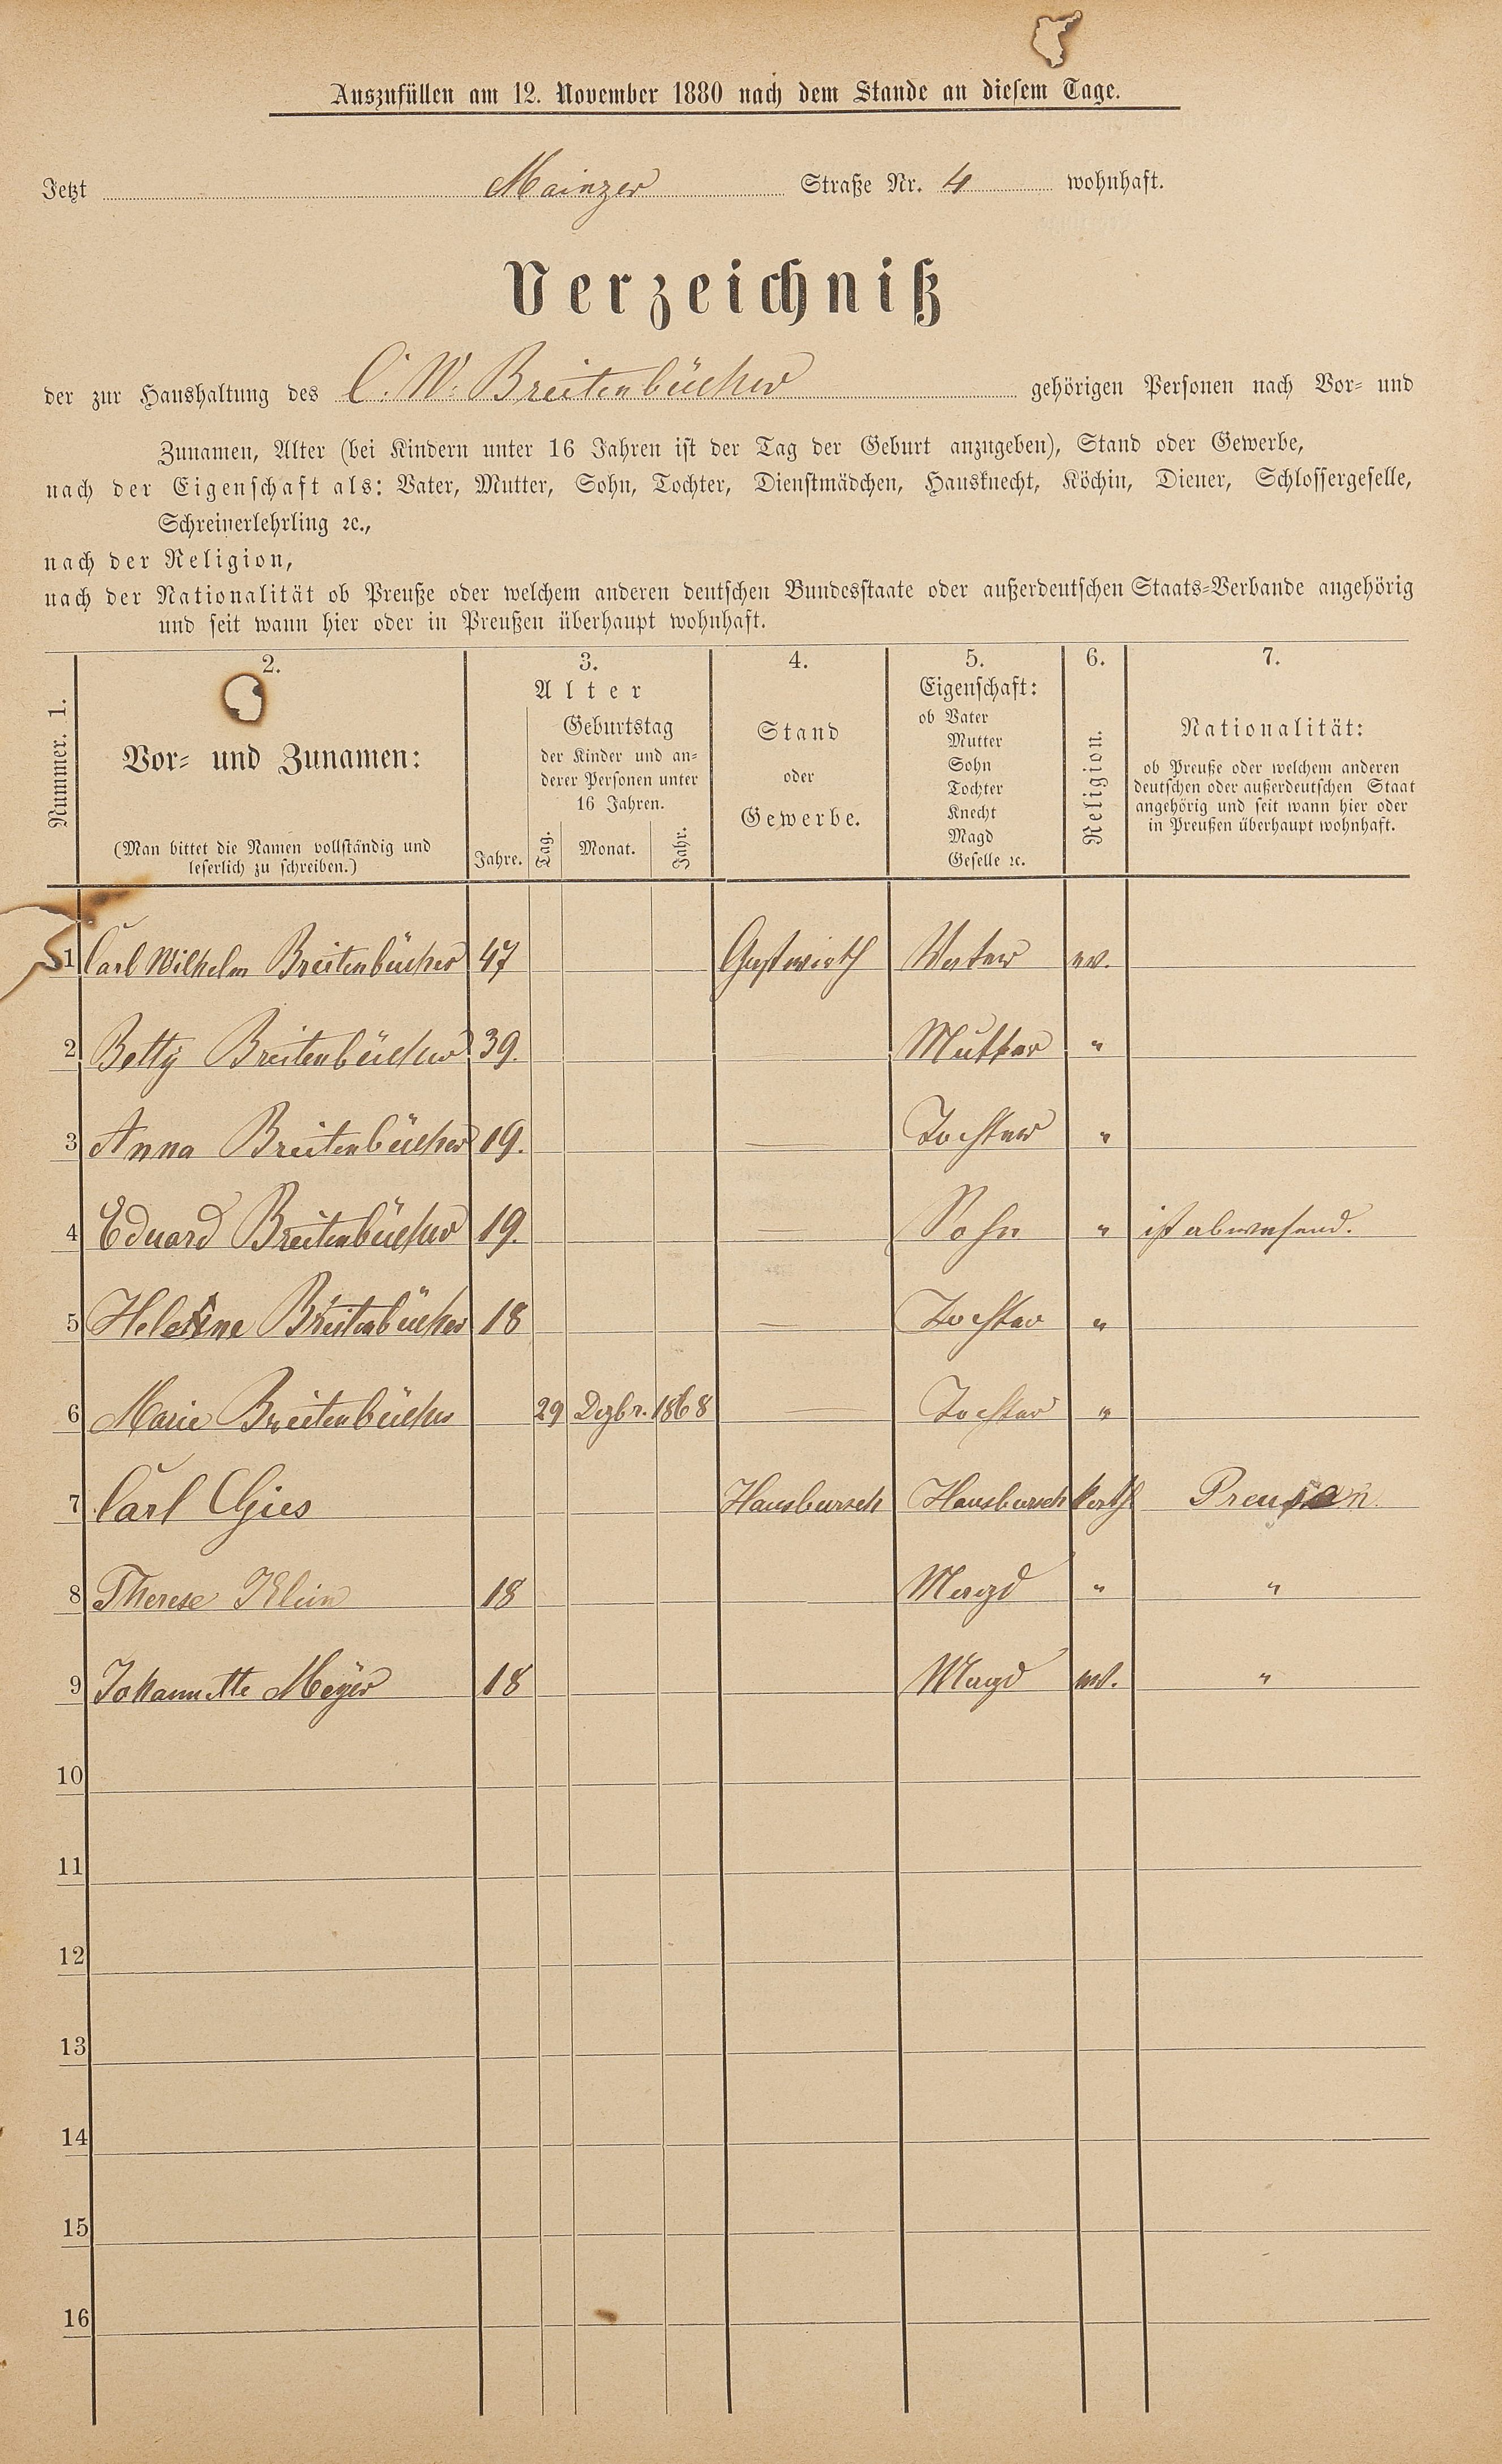 Auszufüllen am 12. November 1880 nach dem Stande an diesem Tage.
Jetzt Mainzer Straße Nr. 4 wohnhaft.
Verzeichniß
der zur Haushaltung des C. W. Breitenbücher gehörigen Personen nach Vor- und
Zunamen, Alter (bei Kindern unter 16 Jahren ist der Tag der Geburt anzugeben), Stand oder Gewerbe,
nach der Eigenschaft als: Vater, Mutter, Sohn, Tochter, Dienstmädchen, Hausknecht, Köchin, Diener, Schlossergeselle,
Schreinerlehrling ꝛc.,
nach der Religion,
nach der Nationalität ob Preuße oder welchem anderen deutschen Bundesstaate oder außerdeutschen Staats-Verbande angehörig
und seit wann hier oder in Preußen überhaupt wohnhaft.
Nummer. 1.
2.
Vor- und Zunamen:
(Man bittet die Namen vollständig und
leserlich zu schreiben.)
3.
Alter
Jahre.
Geburtstag
der Kinder und an-
derer Personen unter
16 Jahren.
Tag. Monat. Jahr.
4.
Stand
oder
Gewerbe.
5.
Eigenschaft:
ob Vater
Mutter
Sohn
Tochter
Knecht
Magd
Geselle ꝛc.
6.
Religion.
7.
Nationalität:
ob Preuße oder welchem anderen
deutschen oder außerdeutschen Staat
angehörig und seit wann hier oder
in Preußen überhaupt wohnhaft.
1 Carl Wilhelm Breitenbücher 47 Gastwirth Vater ev.
2 Betty Breitenbücher 39. Mutter "
3 Anna Breitenbücher 19. — Tochter "
4 Eduard Breitenbücher 19. — Sohn " ist abwesend.
5 Helene Breitenbücher 18 — Tochter "
6 Marie Breitenbücher 29 Dezbr. 1868 — Tochter "
7 Carl Gies Hausbursch Hausbursch kath Preußen
8 Therese Klein 18 Magd " "
9 Johannette Meÿer 18 Magd ev. "
10
11
12
13
14
15
16